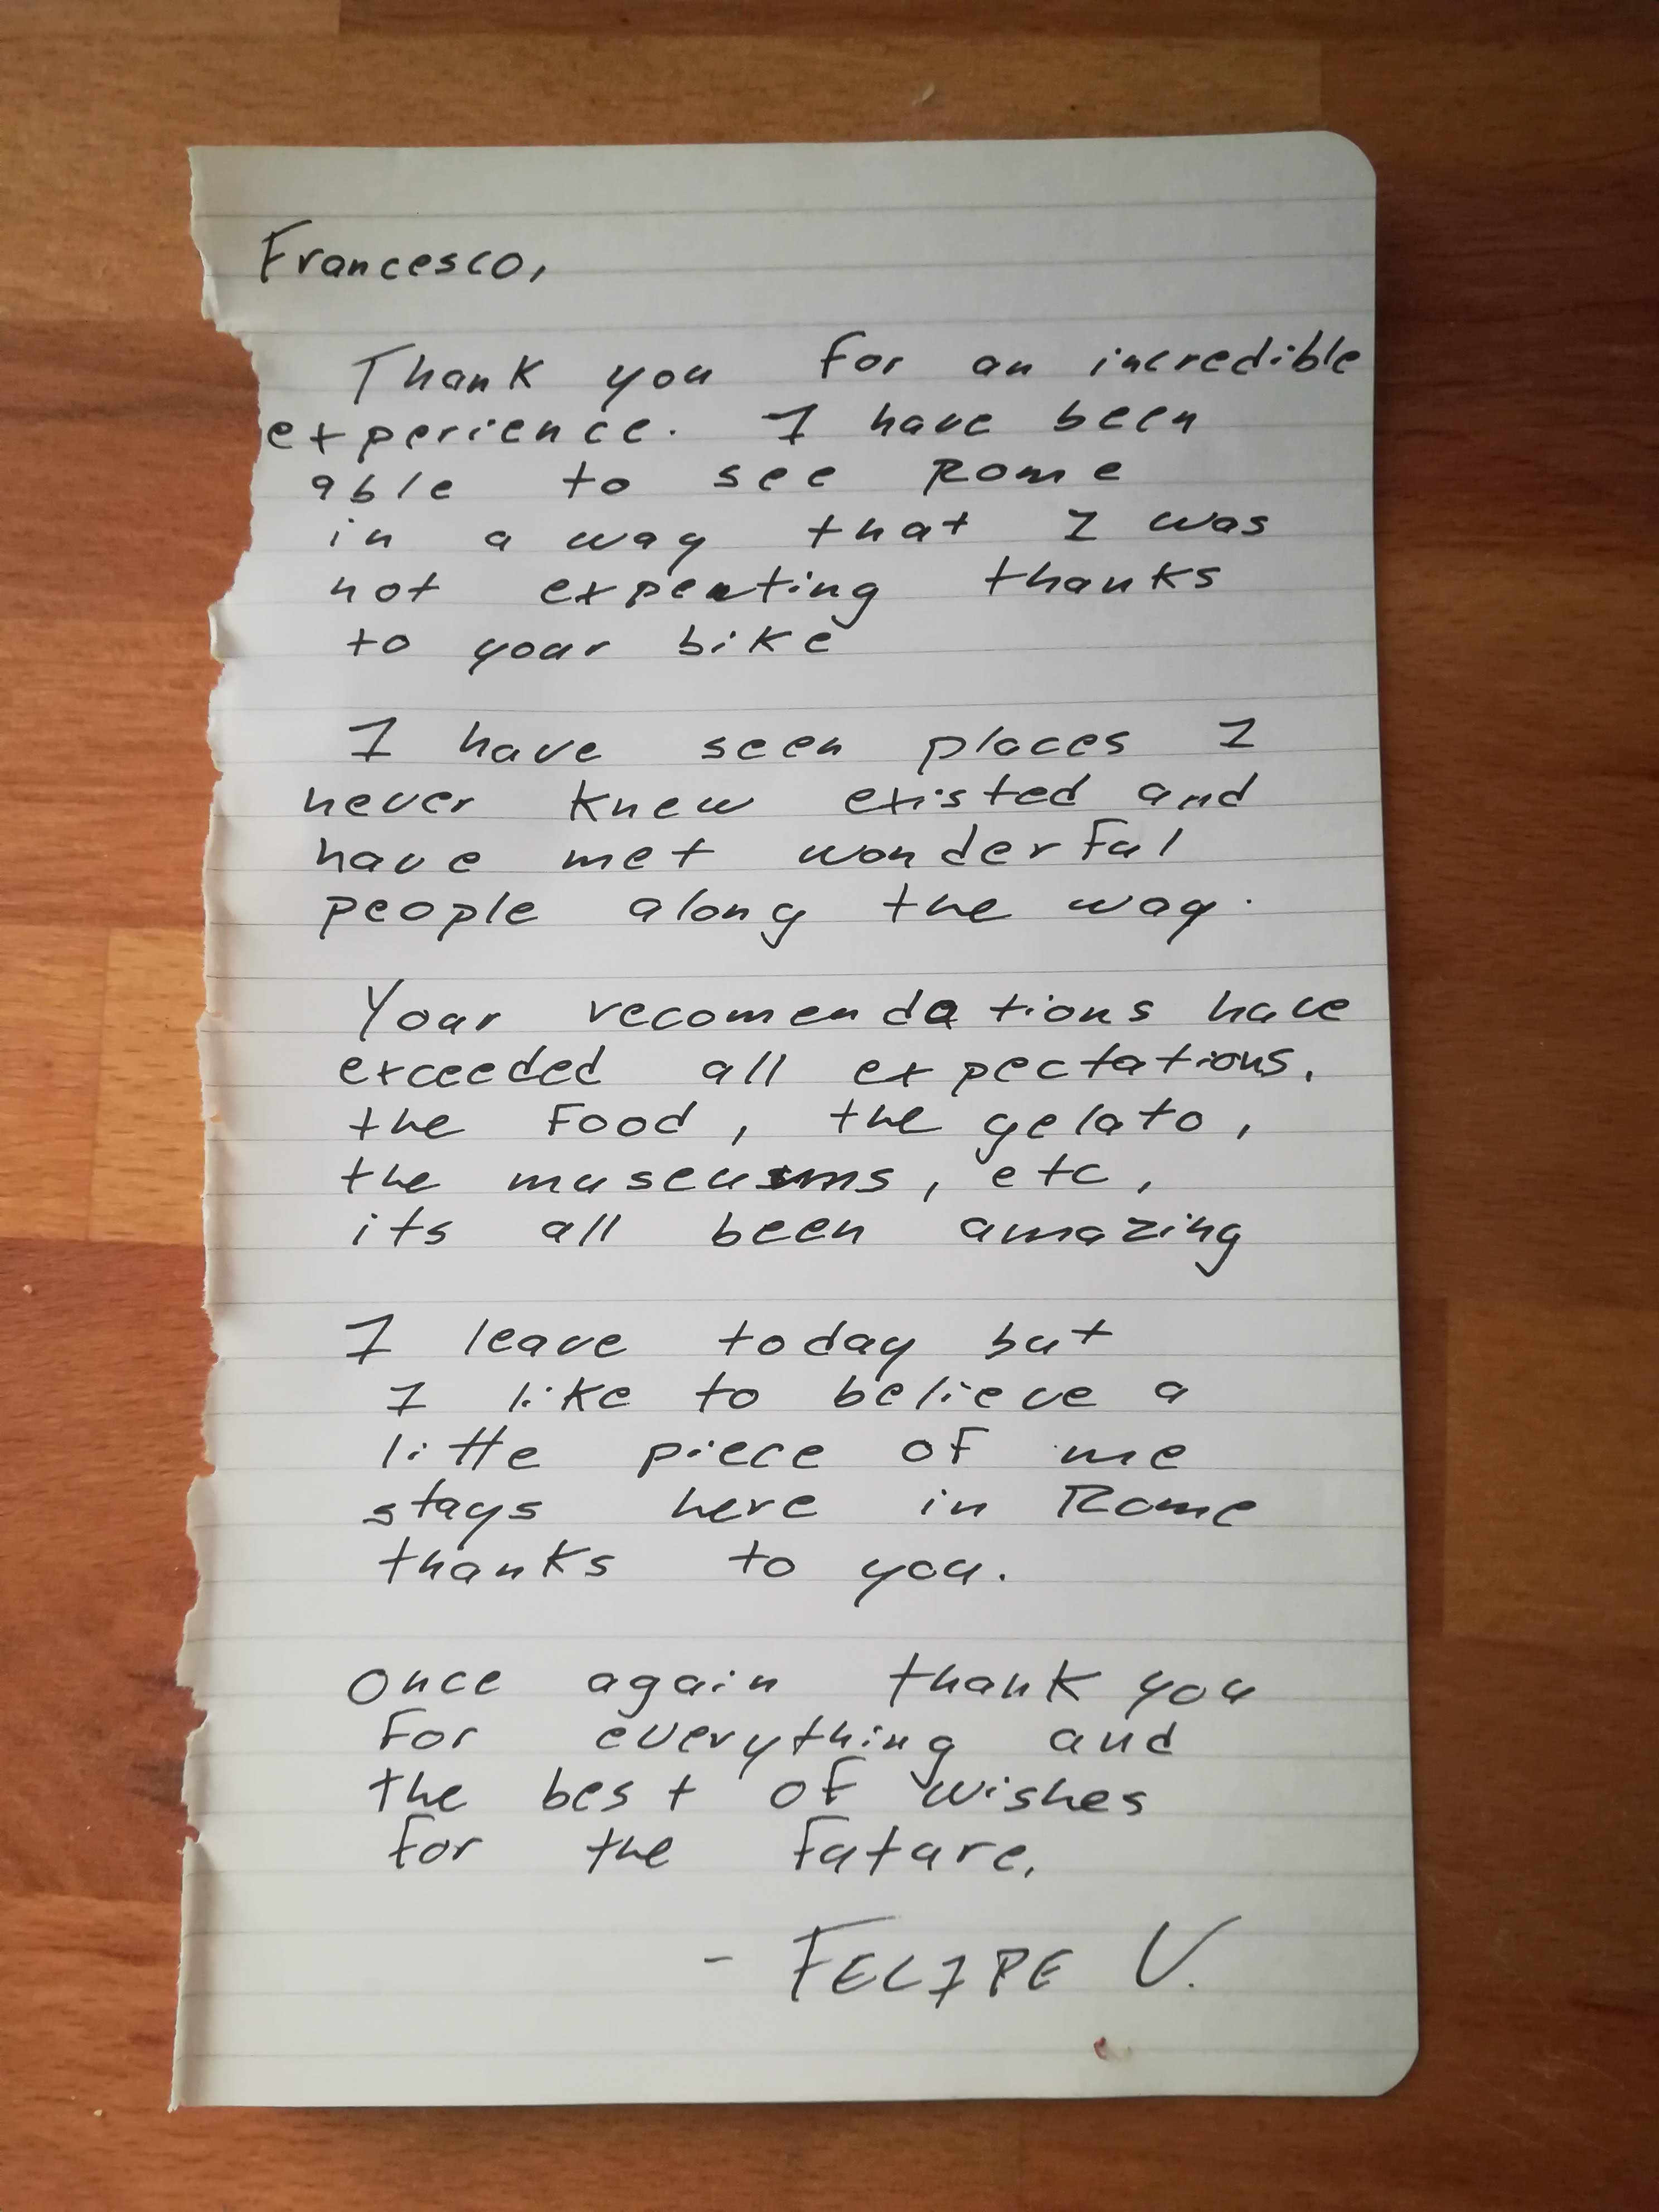 Francesco,
Thank you for an incredible
experience. I have been
able to see Rome
in a way that I was
not expecting thanks
to your bike
I have seen places I
never knew existed and
have met wonderful
people along the way.
Your recomendations have
exceeded all expectations.
the food, the gelato,
the museums, etc,
its all been amazing
I leave today but
I like to believe a
little piece of me
stays here in Rome
thanks to you.
Once again thank you
for everything and
the best of wishes
for the future.
- FELIPE V.